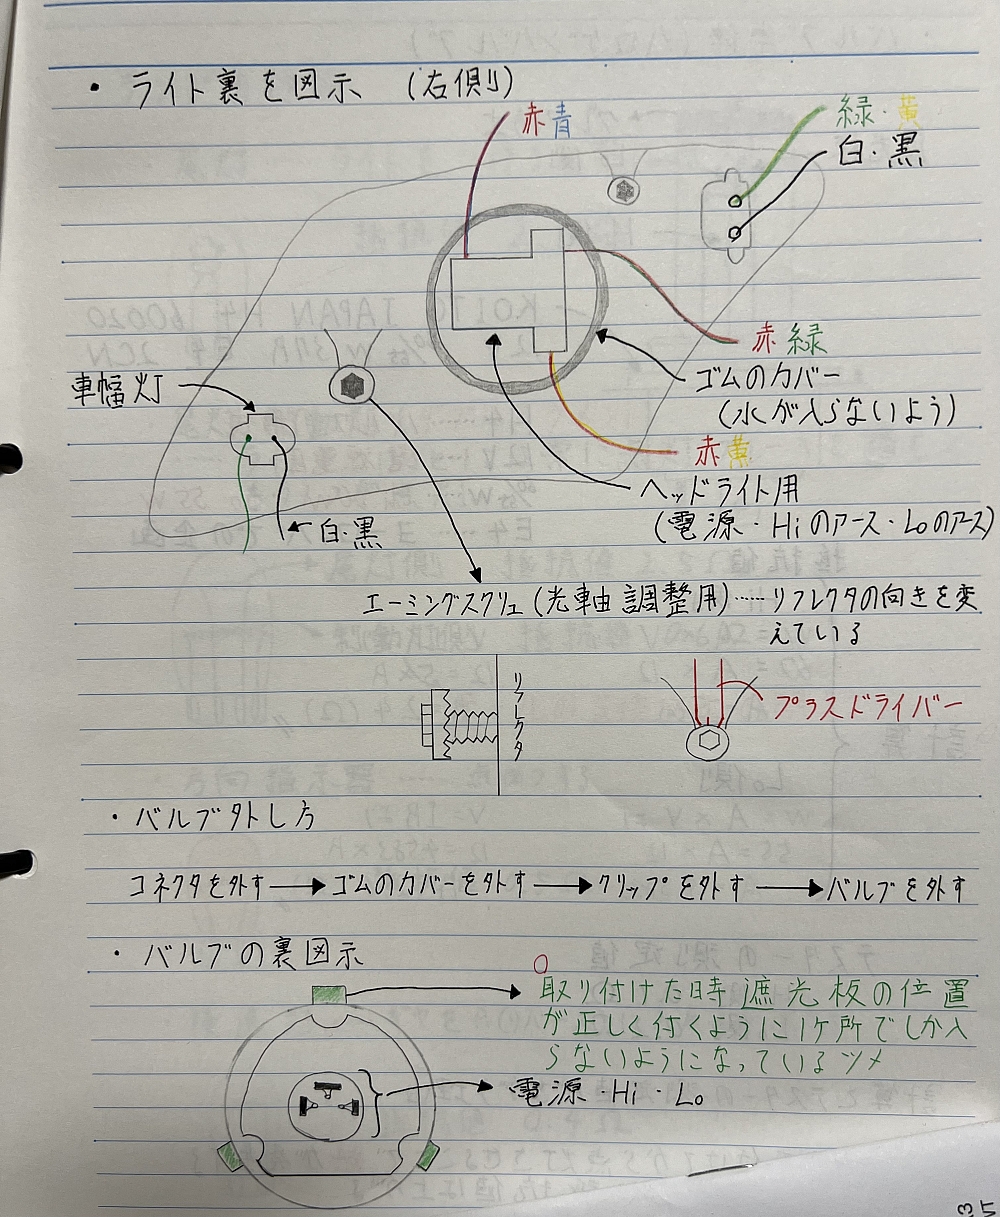 ・ライト裏を図示 (右側)
赤青
緑・黄
白・黒
赤緑
車幅灯
ゴムのカバー
(水が入らないよう)
赤黄
ヘッドライト用
(電源・Hiのアース・Loのアース)
白・黒
エーミングスクリュ(光軸調整用)……リフレクタの向きを変
えている
リフレクタ
プラスドライバー
・バルブ外し方
コネクタを外す→ゴムのカバーを外す→クリップを外す→バルブを外す
・バルブの裏図示
取り付けた時遮光板の位置
が正しく付くように1ヶ所でしか入
らないようになっているツメ
電源・Hi・Lo